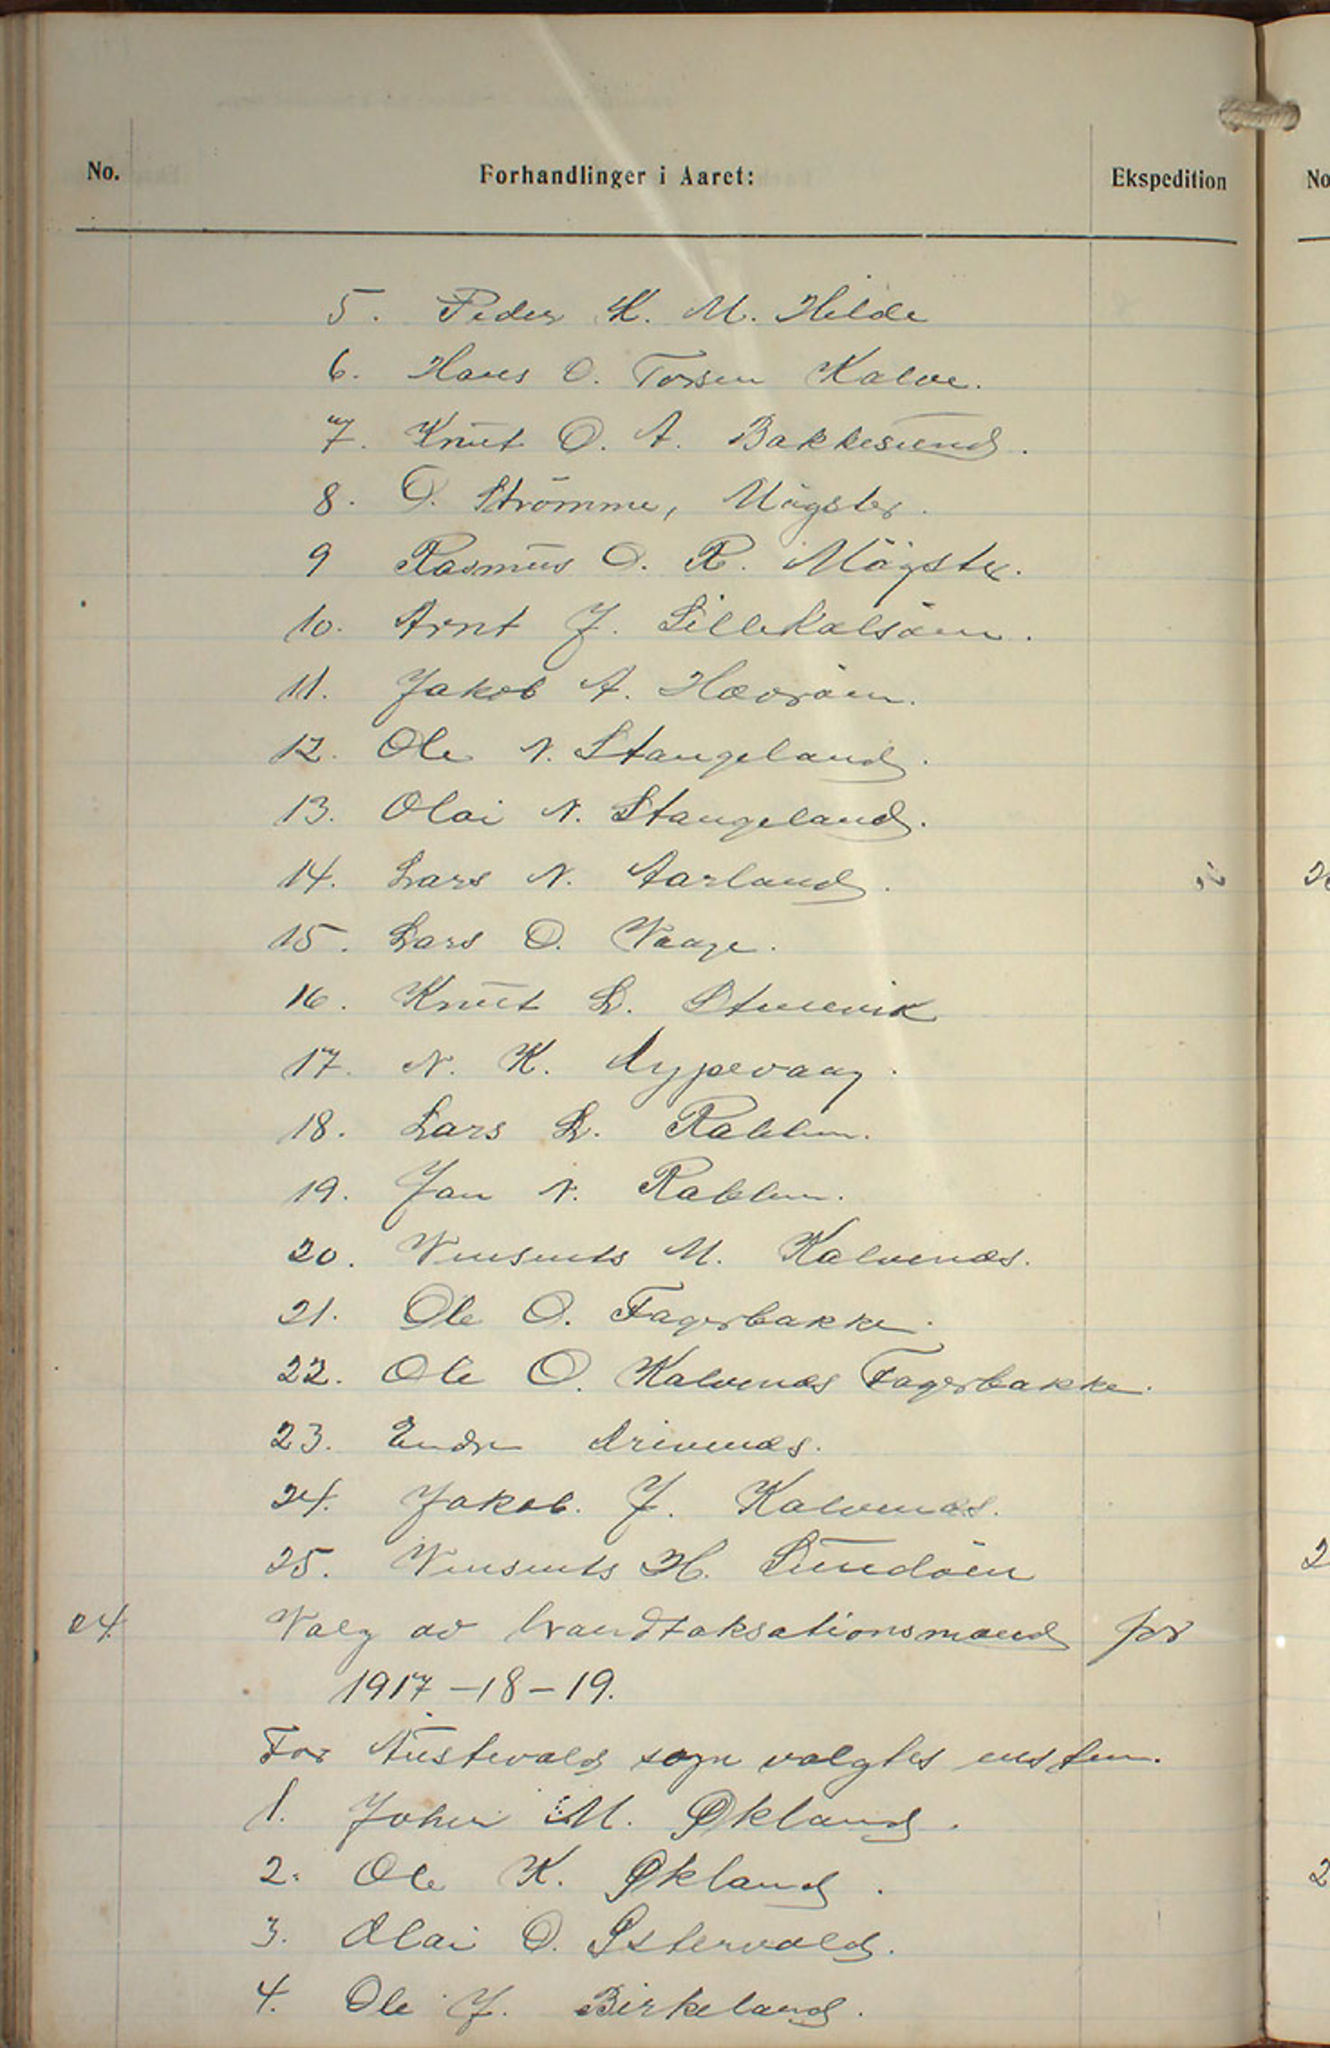 No.
Forhandlinger i Aaret:
Ekspedition
No
5. Peder K. M. Hilde
6. Hans O. Torsen Kalve.
7. Knut O. A. Bakkesund.
8. O. Strömme, Mögster.
9 Rasmus O. R. Mögster.
10. Arnt J. Lillekalsöen.
11. Jakob A. Hævröen.
12. Ole N. Stangeland.
13. Olai N. Stangeland.
14. Lars N. Aarland.
15. Lars O. Vaage.
16. Knut L. Stuevik
17. N. K. Rypevaag.
18. Lars L. Rabben.
19. Jan N. Rabben.
20. Vinsents M. Kalvenæs.
21. Ole O. Fagerbakke.
22. Ole O. Kalvenæs Fagerbakke.
23. Endre Drivenæs.
24. Jakob. J. Kalvenæs.
25. Vinsents H. Sundöen
24. Valg av brandtaksationsmænd for
1917-18-19.
For Austevold sogn valgtes enstem.
1. Johan M. Økland.
2. Ole K. Økland.
3. Olai O. Østervold.
4. Ole J. Birkeland.